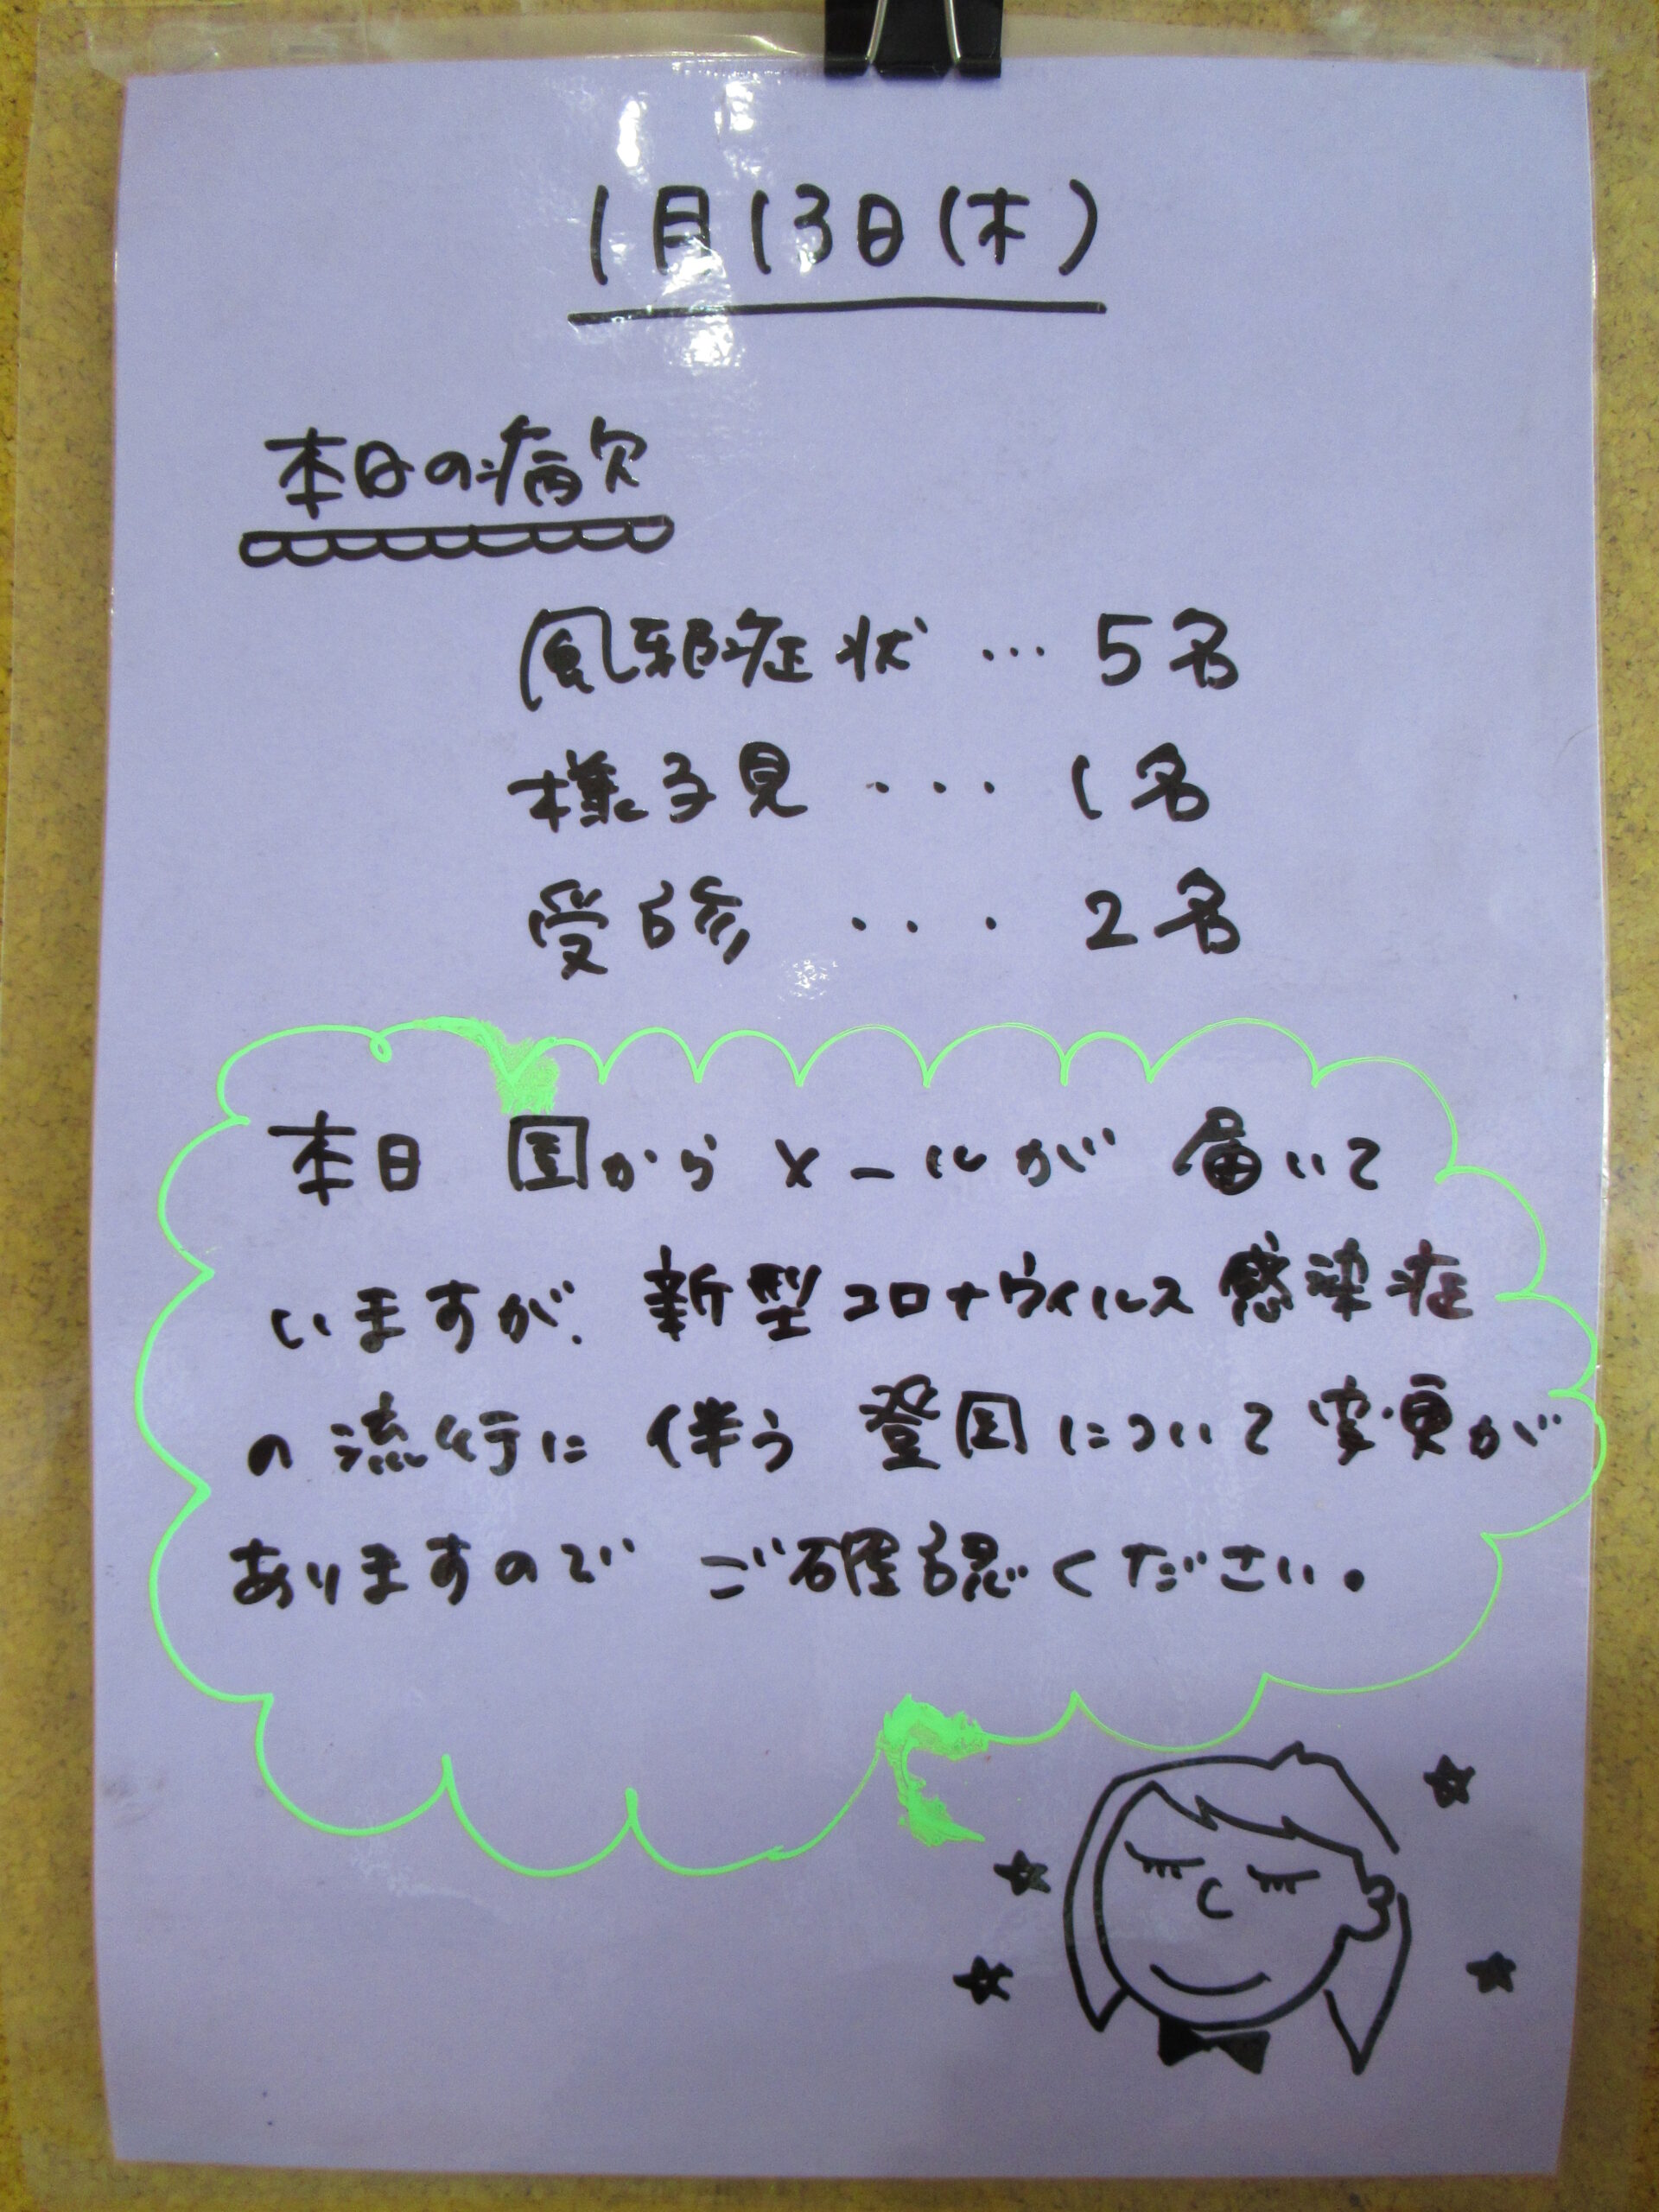 1月13日(木)
本日の病欠
風邪症状 … 5名
様子見 ・・・ 1名
受診 ・・・ 2名
本日 園からメールが届いて
いますが、新型コロナウィルス感染症
の流行に伴う登園について変更が
ありますので ご確認ください。